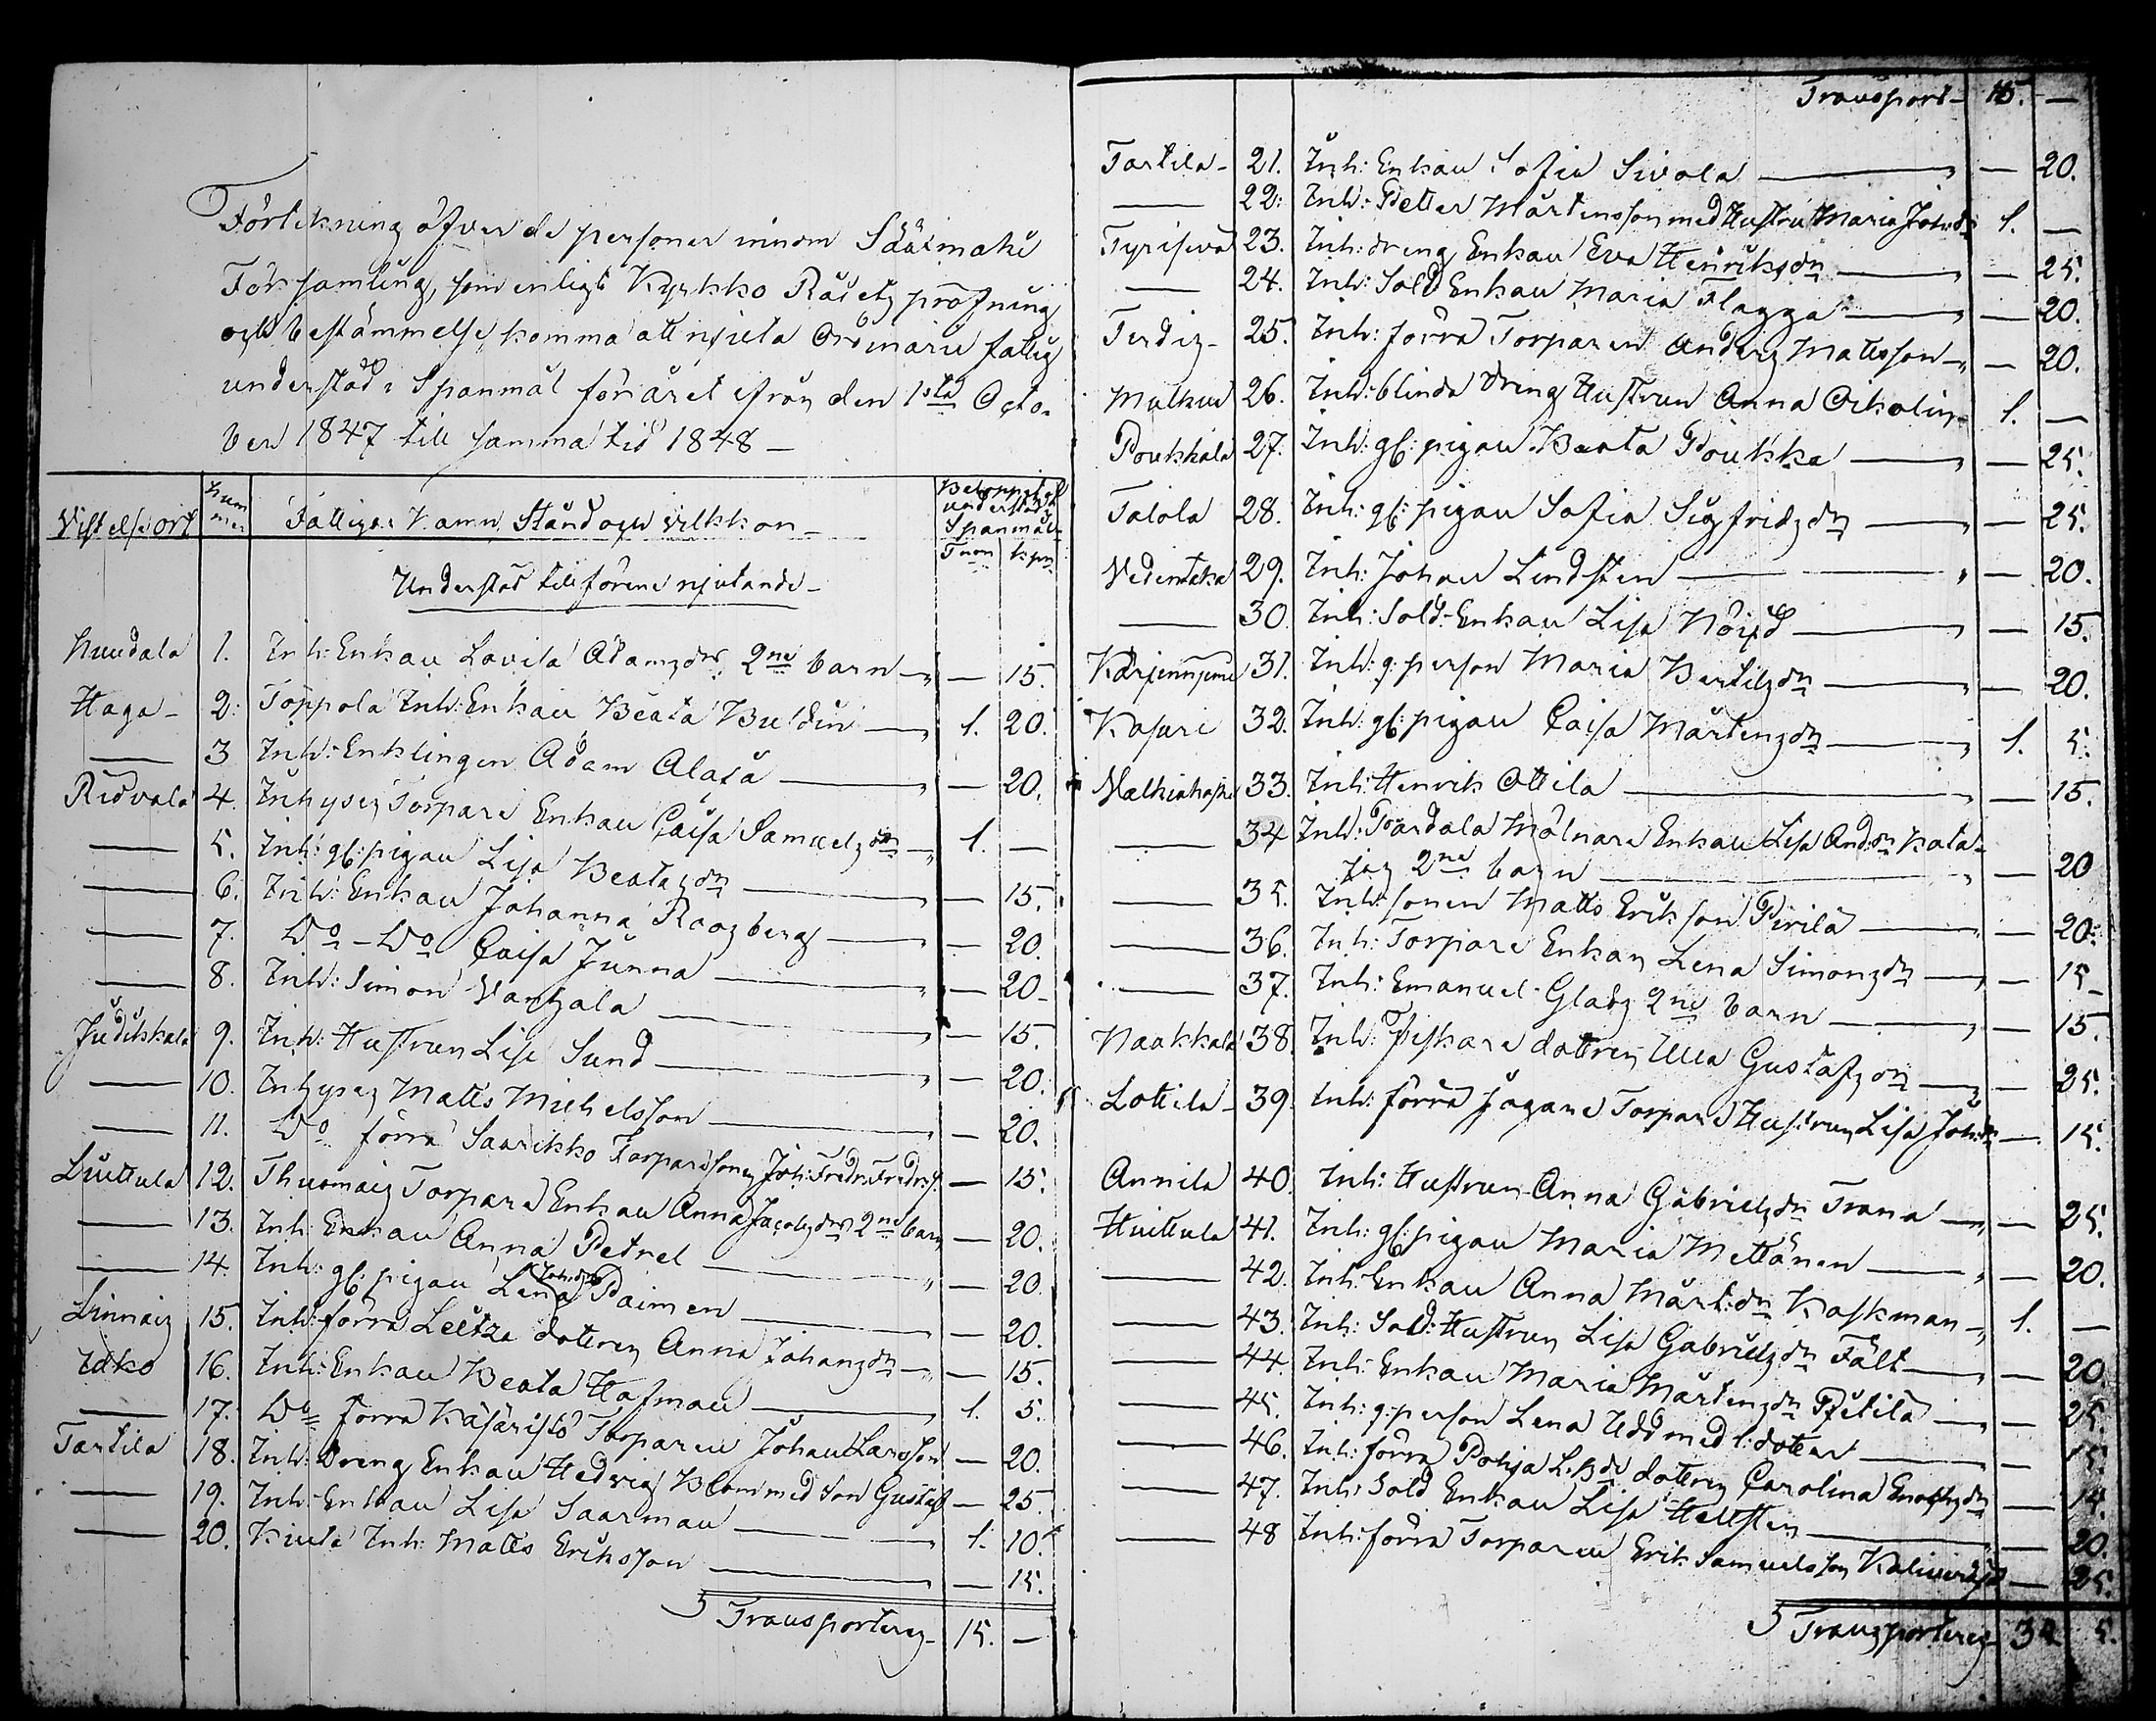 Förtekning öfver de personer innom Sääxmäki
Församling, som enligt Kyrkko Rådetz pröfning
och bestämmelse komma att njuta Ordinarie fattig
understöd i Spanmål för året ifrån den 1sta Octo-
ber 1847 till samma tid 1848 –
Vistelse ort | Num mer | Fattigas Namn, Stånd och vilkkor | Beloppet af understöd i Spanmål
Tnor | kpr
Understöd tillförene njutande –
Huudala 1. Inh: Enkan Lovisa Adamsdr 2ne barn – 15.
Haga – 2. Toppola Inh: Enkan Beata Buldin 1. 20.
— 3 Inh: Enklingen Adam Alasä – 20.
Ridvala 4. Inhyses Torpare Enkan Caisa Samuelsdr 1. –
— 5. Inh: gl: pigan Lisa Beatasdr – 15.
— 6. Inh: Enkan Johanna Roosberg – 20.
— 7. Do – Do Caisa Junna – 20 –
— 8. Inh: Simon Vanhala – 15.
Judikkala 9. Inh: Hustrun Lisa Sund – 20.
— 10. Inhyses Matts Michelsson – 20.
— 11. Do förra Saarikko Torpare sonen Joh: Fredr: Fredrs: – 15.
Liuttula 12. Thuomais Torpare Enkan Anna Jacobsdr 2ne barn – 20.
— 13. Inh: Enkan Anna Petrel – 20.
— 14. Inh: gl: pigan Lena Joh:dr Paimen – 20.
Linnais 15. Inh: förra Leitza dotren Anna Johansdr – 15.
Usko 16. Inh: Enkan Beata Hofman 1. 5.
— 17. Do förra Käsäristö Torparen Johan Larsson – 20.
Tarttila 18. Inh: Dreng Enkan Hedvig Blom med son Gustaf – 25.
— 19. Inh: Enkan Lisa Saarman 1. 10.
— 20. Kiuta Inh: Matts Eriksson – 15.
Transporteres 15. –
Transport – 15. –
Tartila – 21. Inh: Enkan Sofia Sivola – 20.
— 22. Inh: Petter Mårtensson med Hustru Maria Joh:dr 1. –
Tyrisevä 23. Inh: dreng Enkan Eva Henriksdr – 25.
— 24. Inh: Sold Enkan Maria Flagga – 20.
Terdis – 25. Inh: förra Torparen Anders Mattsson – 20.
Mälkiä 26. Inh: blinda Dreng Hustrun Anna Oikolin 1. –
Poukkala 27. Inh: gl: pigan Beata Poukka – 25.
Talola 28. Inh: gl: pigan Sofia Sigfridsdr – 25.
Vedentaka 29. Inh: Johan Lindsten – 20.
— 30. Inh: Sold-Enkan Lisa Nöijd – 15.
Kärjenniemi 31. Inh: q: person Maria Bertilsdr – 20.
Kasuri 32. Inh: gl: pigan Caisa Mårtensdr 1. 5.
Valkiakoski 33. Inh: Henrik Ottila – 15.
— 34 Inh: Pardala Mölnare Enkan Lisa And:dr Kata-
jas 2ne barn – 20
— 35. Inh: sonen Matts Eriksson Pirilä – 20.
— 36. Inh: Torpare Enkan Lena Simonsdr – 15 –
— 37. Inh: Emanuel Glads 2ne barn – 15.
Naakkala 38. Inh: Fiskare dotren Ulla Gustafsdr – 25.
Lottila – 39. Inh: förra Jägare Torpare Hustrun Lisa Joh:dr – 15.
Annila 40. Inh: Hustrun Anna Gabrielsdr Trana – 25.
Huittula 41. Inh: gl: pigan Maria Mettänen – 20.
— 42. Inh: Enkan Anna Mårt:dr Koskman 1. –
— 43. Inh: Sold: Hustrun Lisa Gabrielsdr Fält – 20.
— 44. Inh: Enkan Maria Mårtensdr Pietilä – 25.
— 45. Inh: q: person Lena Udd med 1: doter – 15.
— 46. Inh: förra Pohja L. Bde dotren Carolina Enochsdr – 14.
— 47. Inh: Sold Enkan Lisa Hellsten – 20.
— 48 Inh: förra Torparen Erik Samuelsson – 25.
Transporteres 34 5.